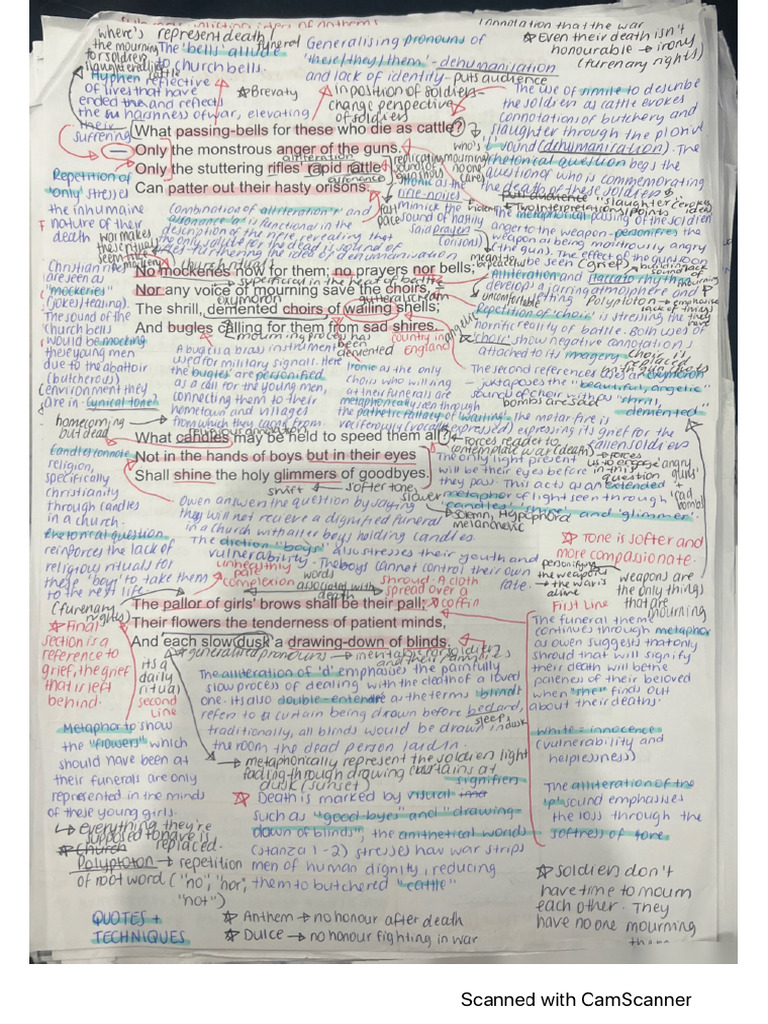 (annotation that the war
where's represent death!
the mourning
for soldiers
slaughtered like
cattle
The 'bells' allude funeral
to church bells.
Generalising pronouns of
'these/they/them' - dehumanisation
and lack of identity - puts audience
in position of soldiers -
change perspective
of soldiers
✩ Even their death isn't
honourable → irony
(funerary rights)
Hyphen reflective
of lives that have
ended and reflects
the harshness of war, elevating
their
suffering
✩ Brevaty
The use of simile to describe
the soldiers as cattle evokes
connotations of butchery and
slaughter through the plosive
sound (dehumanisation). The
rhetorical question begs the
question of who is commemorating
the death of these soldiers
What passing-bells for these who die as cattle?
Only the monstrous anger of the guns.
alliteration
Only the stuttering rifles' rapid rattle
Can patter out their hasty orisons.
Repetition of
'only' stresses
the inhumaine
nature of their
death
replicating
sound of
gunshots
who's
mourning
no one
cares
ironic as the
rifle-noises
mimick the
sound of hastily
said prayer
(orisons)
fast
pace
Combination of alliteration 'r' and
is functional in the
description of the rifle revealing that
the only salute for the dead is sound of
rifles furthering the idea of dehumanisation
The metaphorical passing of the soldiers
anger to the weapon - personifies the
weapon as being monstrously angry
(the gun). The effect of the guns soon
be seen (grief)
war makes
these rituals
seem like
mockery
Christian rites
are seen as
"mockeries"
(jokes/teasing).
The sound of the
church bells
would be mocking
these young men
due to the abattoir
(butcherous)
environment they
are in. Cynical tone!
No mockeries now for them; no prayers nor bells;
Nor any voice of mourning save the choirs,
oxymoron
The shrill, demented choirs of wailing shells;
And bugles calling for them from sad shires.
Alliteration and staccato rhythm
develop a jarring atmosphere and
setting
uncomfortable
Polyptoton → emphasise
lack of
they
have
Repetition of 'choir' is stressing the
horrific reality of battle. Both uses of
'choir' show negative annotations
attached to its imagery.
choir is
replaced
with gun shots
mourning process has
been
demented
country in
england
A bugle is a brass instrument
used for military signals. Here
the bugles are personified
as a call for the young men,
connecting them to their
hometown and villages
from which they came from.
ironic as the only
choirs who will sing
at their funerals are
metaphorically seen through
the pathetic fallacy of 'wailing'. The motar fire is
vociferously (vocally expressed) expressing its grief for the
fallen soldiers
The second references uses an oxymoron
- juxtaposes the "beautiful, angelic"
sound of choir with as "shrill,
demented"
bombs are said
homecoming
but dead
What candles may be held to speed them all?
Not in the hands of boys but in their eyes
Shall shine the holy glimmers of goodbyes.
shift ← softer tone
forces reader to
contemplate war (death)
→ forces
us to engage
in this
question
angry
guns
+
sad
bombs
The only light present
will be their eyes before
they pass. This acts as an extended
metaphor of light seen through
"candles", "shine" and "glimmer".
slower
solemn,
melancholic
Candle connote
religion,
specifically
christianity
through candles
in a church.
Rhetorical question
reinforces the lack of
religious rituals for
these 'boys' to take them
to the next life
(funerary
rights)
Owen answers the question by saying
they will not recieve a dignified funeral
in a church with alter boys holding candles.
The diction "boys" also stresses their youth and
vulnerability. The boys cannot control their own
fate.
✩ Tone is softer and
more compassionate.
personifying
the weapons
→ the war is
alive
weapons are
the only things
that are
mourning
unhealthily
pale
complexion
words
associated with
death
shroud: A cloth
spread over a
coffin
The pallor of girls' brows shall be their pall;
Their flowers the tenderness of patient minds,
And each slow dusk a drawing-down of blinds.
✩ Final
section is a
reference to
grief, the grief
that is left
behind.
generalised pronouns → inevitable for soldiers
and their families
its a
daily
ritual
second
line
The alliteration of 'd' emphasises the painfully
slow process of dealing with the death of a loved
one. Its also double-entendre as the terms 'blinds'
refers to a curtain being drawn before bed and,
traditionally, all blinds would be drawn in dusk
sleeps
the room the dead person laid in.
→ metaphorically represent the soldiers light
fading through drawing curtains at
dusk (sunset)
First Line
The funeral theme
continues through metaphor
as owen suggests that only
shroud that will signify
their death will be the
paleness of their beloved
when "she" finds out
about their deaths.
White = innocence
(vulnerability and
helplessness)
The alliteration of the
'p' sound emphasises
the loss through the
softness of tone.
Metaphor to show
the "flowers" which
should have been at
their funerals are only
represented in the minds
of these young girls.
↳ everything they're
supposed to have is
replaced.
✩ Church
signifiers
✩ Death is marked by visual
such as "good byes" and "drawing-
down of blinds", the antithetical words
(stanza 1-2) stresses how war strips
men of human dignity, reducing
them to butchered "cattle"
Polyptoton → repetition
of root word ("no", "nor",
"not")
✩ Soldiers don't
have time to mourn
each other. They
have no one mourning
them
QUOTES +
TECHNIQUES
✩ Anthem → no honour after death
✩ Dulce → no honour fighting in war
Scanned with CamScanner